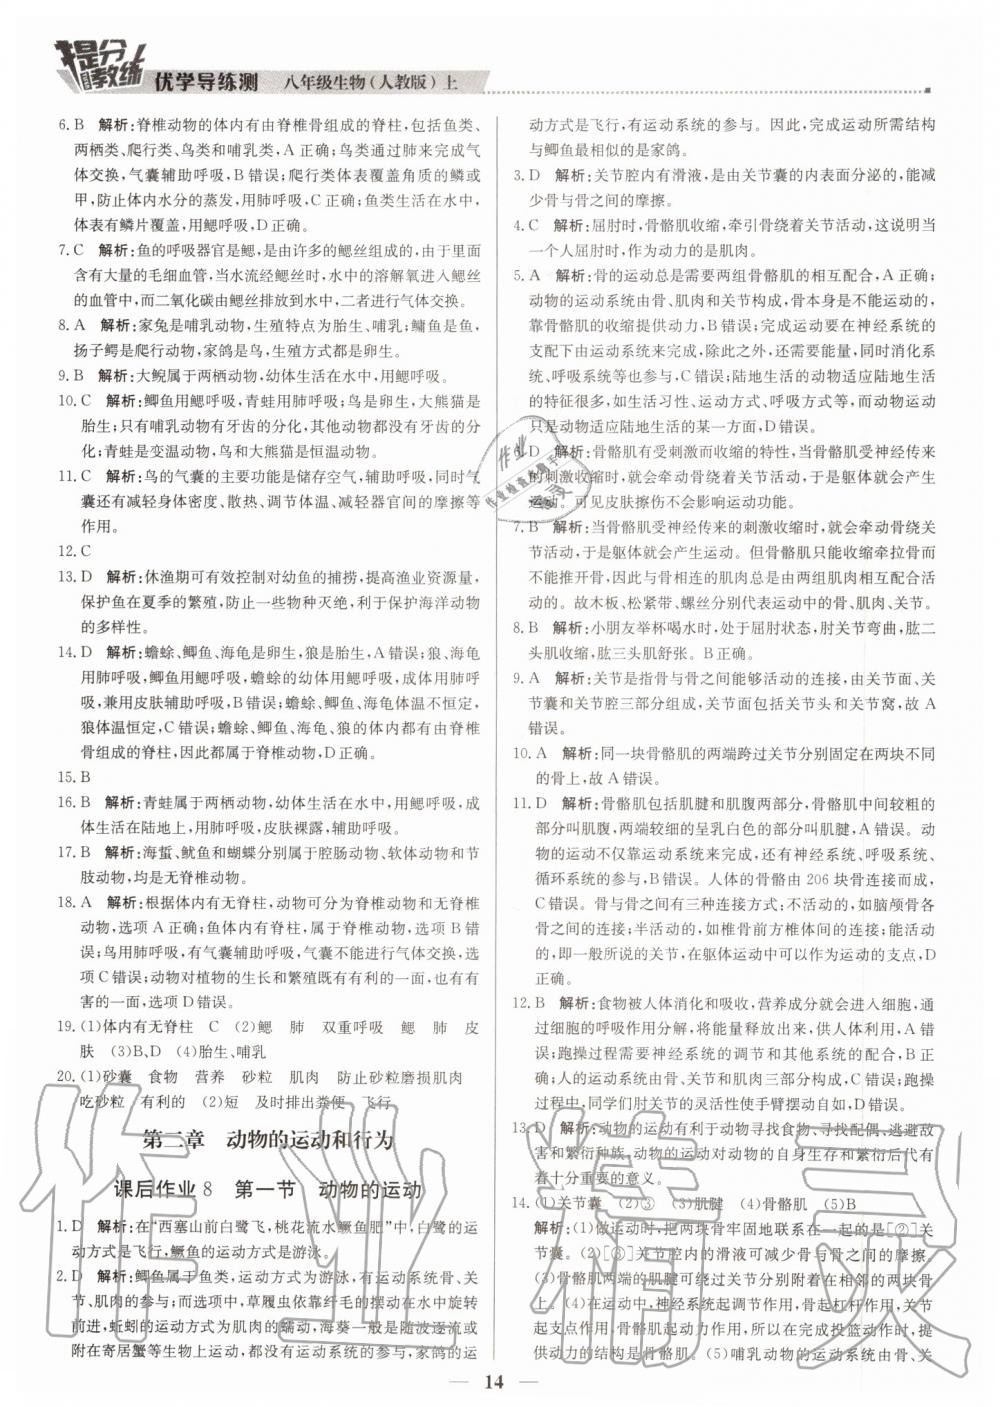 提分
教练
优学导练测 八年级生物(人教版)上
6. B 解析:脊椎动物的体内有由脊椎骨组成的脊柱,包括鱼类、
两栖类、爬行类、鸟类和哺乳类,A 正确;鸟类通过肺来完成气
体交换,气囊辅助呼吸,B 错误;爬行类体表覆盖角质的鳞或
甲,防止体内水分的蒸发,用肺呼吸,C 正确;鱼类生活在水中,
体表有鳞片覆盖,用鳃呼吸,D 正确。
7. C 解析:鱼的呼吸器官是鳃,是由许多的鳃丝组成的,由于里面
含有大量的毛细血管,当水流经鳃丝时,水中的溶解氧进入鳃丝
的血管中,而二氧化碳由鳃丝排放到水中,二者进行气体交换。
8. A 解析:家兔是哺乳动物,生殖特点为胎生、哺乳;鳙鱼是鱼,
扬子鳄是爬行动物,家鸽是鸟,生殖方式都是卵生。
9. B 解析:大鲵属于两栖动物,幼体生活在水中,用鳃呼吸。
10. C 解析:鲫鱼用鳃呼吸,青蛙用肺呼吸;鸟是卵生,大熊猫是
胎生;只有哺乳动物有牙齿的分化,其他动物都没有牙齿的分
化;青蛙是变温动物,鸟和大熊猫是恒温动物。
11. C 解析:鸟的气囊的主要功能是储存空气,辅助呼吸,同时气
囊还有减轻身体密度、散热、调节体温、减轻器官间的摩擦等
作用。
12. C
13. D 解析:休渔期可有效控制对幼鱼的捕捞,提高渔业资源量,
保护鱼在夏季的繁殖,防止一些物种灭绝,利于保护海洋动物
的多样性。
14. D 解析:蟾蜍、鲫鱼、海龟是卵生,狼是胎生,A 错误;狼、海龟
用肺呼吸,鲫鱼用鳃呼吸,蟾蜍的幼体用鳃呼吸,成体用肺呼
吸,兼用皮肤辅助呼吸,B 错误;蟾蜍、鲫鱼、海龟体温不恒定,
狼体温恒定,C 错误;蟾蜍、鲫鱼、海龟、狼的体内都有由脊椎
骨组成的脊柱,因此都属于脊椎动物,D 正确。
15. B
16. B 解析:青蛙属于两栖动物,幼体生活在水中,用鳃呼吸,成
体生活在陆地上,用肺呼吸,皮肤裸露,辅助呼吸。
17. B 解析:海蜇、鱿鱼和蝴蝶分别属于腔肠动物、软体动物和节
肢动物,均是无脊椎动物。
18. A 解析:根据体内有无脊柱,动物可分为脊椎动物和无脊椎
动物,选项 A 正确;鱼体内有脊柱,属于脊椎动物,选项 B 错
误;鸟用肺呼吸,有气囊辅助呼吸,气囊不能进行气体交换,选
项 C 错误;动物对植物的生长和繁殖既有有利的一面,也有有
害的一面,选项 D 错误。
19. (1)体内有无脊柱 C (2)鳃 肺 双重呼吸 鳃 肺 皮
肤 (3)B、D (4)胎生、哺乳
20. (1)砂囊 食物 营养 砂粒 肌肉 防止砂粒磨损肌肉
吃砂粒 有利的 (2)短 及时排出粪便 飞行
第二章 动物的运动和行为
课后作业 8 第一节 动物的运动
1. D 解析:在“西塞山前白鹭飞,桃花流水鳜鱼肥”中,白鹭的运
动方式是飞行,鳜鱼的运动方式是游泳。
2. D 解析:鲫鱼属于鱼类,运动方式为游泳,有运动系统骨、关
节、肌肉的参与;而选项中,草履虫依靠纤毛的摆动在水中旋转
前进,蚯蚓的运动方式为肌肉的蠕动,海葵一般是随波逐流或
附在寄居蟹等生物上运动,都没有运动系统的参与,家鸽的运
动方式是飞行,有运动系统的参与。因此,完成运动所需结构
与鲫鱼最相似的是家鸽。
3. D 解析:关节腔内有滑液,是由关节囊的内表面分泌的,能减
少骨与骨之间的摩擦。
4. C 解析:屈肘时,骨骼肌收缩,牵引骨绕着关节活动,这说明当
一个人屈肘时,作为动力的是肌肉。
5. A 解析:骨的运动总是需要两组骨骼肌的相互配合,A 正确;
动物的运动系统由骨、肌肉和关节构成,骨本身是不能运动的,
靠骨骼肌的收缩提供动力,B 错误;完成运动要在神经系统的
支配下由运动系统来完成,除此之外,还需要能量,同时消化系
统、呼吸系统等也参与,C 错误;陆地生活的动物适应陆地生活
的特征很多,如生活习性、运动方式、呼吸方式等,而动物运动
只是动物适应陆地生活的某一方面,D 错误。
D 解析:骨骼肌有受刺激而收缩的特性,当骨骼肌受神经传
来的刺激收缩时,就会牵动骨绕着关节活动,于是躯体就会产生
运动。可见皮肤擦伤不会影响运动功能。
7. B 解析:当骨骼肌受神经传来的刺激收缩时,就会牵动骨绕关
节活动,于是躯体就会产生运动。但骨骼肌只能收缩牵拉骨而
不能推开骨,因此与骨相连的肌肉总是由两组肌肉相互配合活
动的。故木板、松紧带、螺丝分别代表运动中的骨、肌肉、关节。
8. B 解析:小朋友举杯喝水时,处于屈肘状态,肘关节弯曲,肱二
头肌收缩,肱三头肌舒张。B 正确。
9. A 解析:关节是指骨与骨之间能够活动的连接,由关节面、关
节囊和关节腔三部分组成,关节面包括关节头和关节窝,故 A
错误。
10. A 解析:同一块骨骼肌的两端跨过关节分别固定在两块不同
的骨上,故 A 错误。
11. D 解析:骨骼肌包括肌腱和肌腹两部分,骨骼肌中间较粗的
部分叫肌腹,两端较细的呈乳白色的部分叫肌腱,A 错误。动
物的运动不仅靠运动系统来完成,还有神经系统、呼吸系统、
循环系统的参与,B 错误。人体的骨骼由 206 块骨连接而成,
C 错误。骨与骨之间有三种连接方式:不活动的,如脑颅骨各
骨之间的连接;半活动的,如椎骨前方椎体间的连接;能活动
的,即一般所说的关节,在躯体运动中可以作为运动的支点,D
正确。
12. B 解析:食物被人体消化和吸收,营养成分就会进入细胞,通
过细胞的呼吸作用分解,将能量释放出来,供人体利用,A 错
误;跑操过程需要神经系统的调节和其他系统的配合,B 正
确;人的运动系统由骨、关节和肌肉三部分构成,C 错误;跑操
过程中,同学们肘关节的灵活性使手臂摆动自如,D 错误。
13. D 解析:动物的运动有利于动物寻找食物、寻找配偶、逃避敌
害和繁衍种族,动物的运动对动物的自身生存和繁衍后代有
着十分重要的意义。
14. (1)关节囊 (2)③ (3)肌腱 (4)骨骼肌 (5)B
解析:(1)做运动时,把两块骨牢固地联系在一起的是[②]关
节囊。(2)[③]关节腔内的滑液可减少骨与骨之间的摩擦。
(3)骨骼肌两端的肌腱可绕过关节分别附着在相邻的两块骨
上。(4)在运动中,神经系统起调节作用,骨起杠杆作用,关节
起支点作用,骨骼肌起动力作用,所以在完成投篮动作时,提
供动力的结构是骨骼肌。(5)哺乳动物的运动系统由骨、关
14
作业精灵